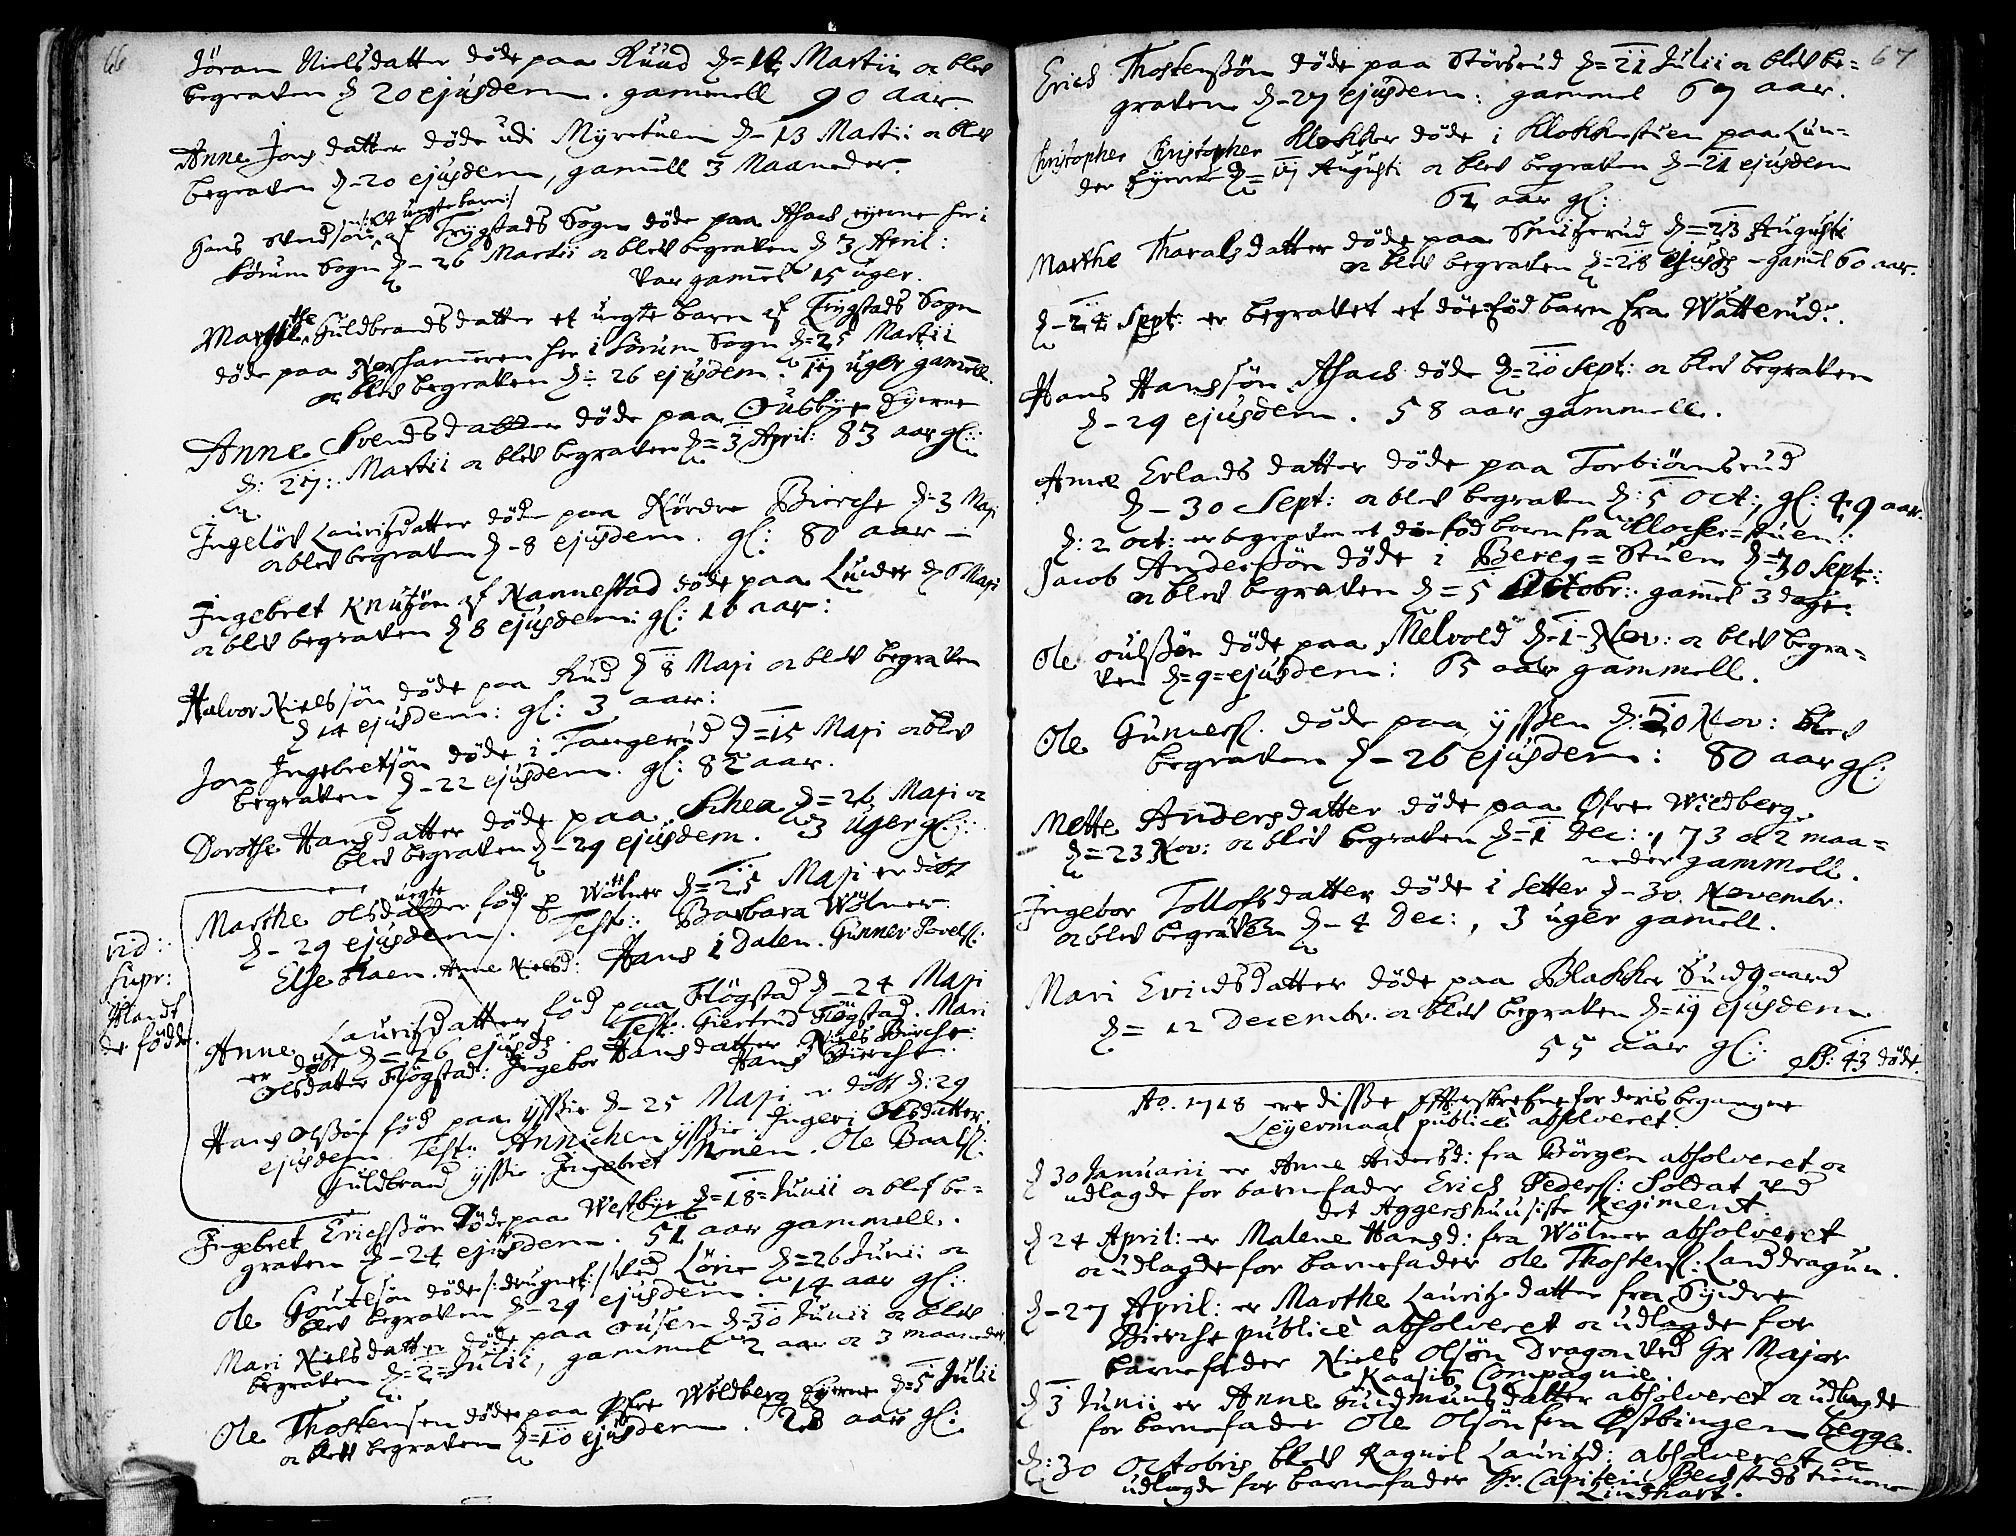 66
Jöran Nielsdatter døde paa Ruud d= 14 Martii oc blev
begraven d 20 ejusdem. gammell 90 aar.
Anne Jens datter døde udi Myrstuen d- 13 Martii oc blev
begraven d-20 ejusdem, gamell 3 Maaneder.
/: et uegte barn:/
Hans Svendsøn af Trygstads Sogn døde paa Asach eyerne her i
Sørum Sogn d- 26 Martii oc blev begraven d 3 April:
var gamel 15 uger.
Marthe Guldbrandsdatter et uegte barn af Trygstads Sogn
døde paa Norhameren her i Sørum Sogn d=25 Martii
oc blev begraven d= 26 ejusdem. 17 uger gamell.
Anne Svendsdatter døde paa Ousbye Eyerne
d: 27: Martii oc blev begraven d= 3 April: 83 aar gl:
Ingeløv Lauritzdatter døde paa Nordre Bierche d- 3 Maji
oc blev begraven d-8 ejusdem. gl: 80 aar –
Ingebret Knutzøn af Nannestad døde paa Lunder d 6 Maji
oc blev begraven d 8 ejusdem: gl: 16 aar:
Halvor Nielssøn døde paa Rud d 8 Maji oc blev begraven
d 14 ejusdem: gl: 3 aar:
Jon Ingebretsøn døde i Tangerud d=15 Maji oc blev
begraven d-22 ejusdem. gl: 82 aar.
Dorothe Hansdatter døde paa Schea d=26 Maji oc
blev begraven d-29 ejusdem. 3 uger gl:
uegte
Marthe Olsdatter fød p Wølner d=25 Maji er døbt
d-29 ejusdem. Test: Barbara Wølner.
Else Haen. Anne Nielsd: Hans i Dalen. Gunner Povels:
vid:
supr:
blandt
de fødde.
Anne Lauritzdatter fød paa Fløgstad d-24 Maji
er døbt d=26 ejusd. Test: Giertrud Fløgstad. Mari
Olsdatter Fløgstad: Ingebor Hansdatter Niels Bierche:
Hans Bierche.
Hans Olssøn fød paa Ysssie d-25 Maji er døbt d: 29
ejusdem Test: Annichen Ysssie Ingeri Olsdatter.
Guldbrand Ysssie. Ingebret Monen. Ole Baarss:
Ingebret Erichssøn døde paa Westbye d=18=Junii oc blef be=
graven d-24 ejusdem. 51 aar gammell.
Ole Goutesøn døde /:drugnet:/ ved Lørie d=26 Junii oc
blev begraven d-29 ejusdem. 14 aar gl:
Mari Nielsdatter døde paa Ousen d-30 Junii oc blev
begraven d=2=Julii, gammel 2 aar oc 3 maaneder
Ole Thostensen døde paa Øfre Wøldberg Eyerne d=5 Julii
oc blev begraven d=10 ejusdem. 28 aar gl:
67
Erich Thostenssøn døde paa Størsrud d=21 Julii oc blev be=
graven d-27 ejusdem: gammel 67 aar.
Christopher Christopher Klokker døde i Klokkerstuen paa Lun=
der Eyerne d=17 Augusti oc blev begraven d-21 ejusdem
61 aar gl:
Marthe Tharalsdatter døde paa d=23 Augusti
oc blev begraven d=28 ejusd - gamel 60 aar.
d-24 Sept: er begravet et dødfød barn fra Watterud:
Hans Hanssøn Asach døde d=20 Sept: oc blev begraven
d-29 ejusdem. 58 aar gammell.
Anne Erlandsdatter døde paa Torbiørnsrud
d-30 Sept: oc blev begraven d: 5 Oct; gl: 49 aar.
d: 2 Oct: er begraven et dødfød barn fra Klocher=stuen:
Jacob Anderssøn døde i Bereg=Stuen d=30 Sept:
oc blev begraven d=5 Octobr: gamel 3 dage:
Ole Oulssøn døde paa Melvold d-1-Nov: oc blev begra=
ven d=9=ejusdem: 65 aar gammell.
Ole Gunners. døde paa Ysssien d: 20 Nov: blev
begraven d-26 ejusdem: 80 aar gl:
Mette Andersdatter døde paa Øfre Wøldberg
d=23 Nov: oc blev begraven d=1 Dec:, 73 oc 2 maa=
neder gammell.
Ingebor Tollofsdatter døde i Setter d-30. Novembr.
oc blev begraven d-4 Dec:, 3 uger gamell.
Mari Erichsdatter døde paa Blakker Sundgaard
d= 12 Decembr. oc blev begraven d=19 ejusdem
55 aar gl:
43 døde.
Ao. 1718 ere disse Efterskrefne for deris begangne
Leyermaal publicè absolveret.
d 30 Januarii er Anne Andersd: fra Børgen absolveret oc
udlagde for barnefader Erich Peders: Soldat ved
det Aggershuusiske Regiment.
d 24 April: er Malene Hansd: fra Wølner absolveret
oc udlagde for barnefader Ole Thostens: Landdragun.
d-27 April: er Marthe Lauritzdatter fra Syndre
Bierche publicè absolveret oc udlagde for
barnefader Niels Olsøn Dragon ved Hr Major
Kaasis Compagnie.
d 3 Junii er Anne Gudmundsdatter absolveret oc udlagde
for barnefader Ole Olsøn fra Østbingen begge.
d: 30 Octobris blev Ragnil Lauritzd: absolveret oc
udlagde for barnefader Hr. Capitein tienere
Lindhart.